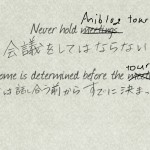 Aniblog tour
Never hold meetings
会議をしてはならない
tour
ome is determined before the meeti
は話し合う前からすでに決ま